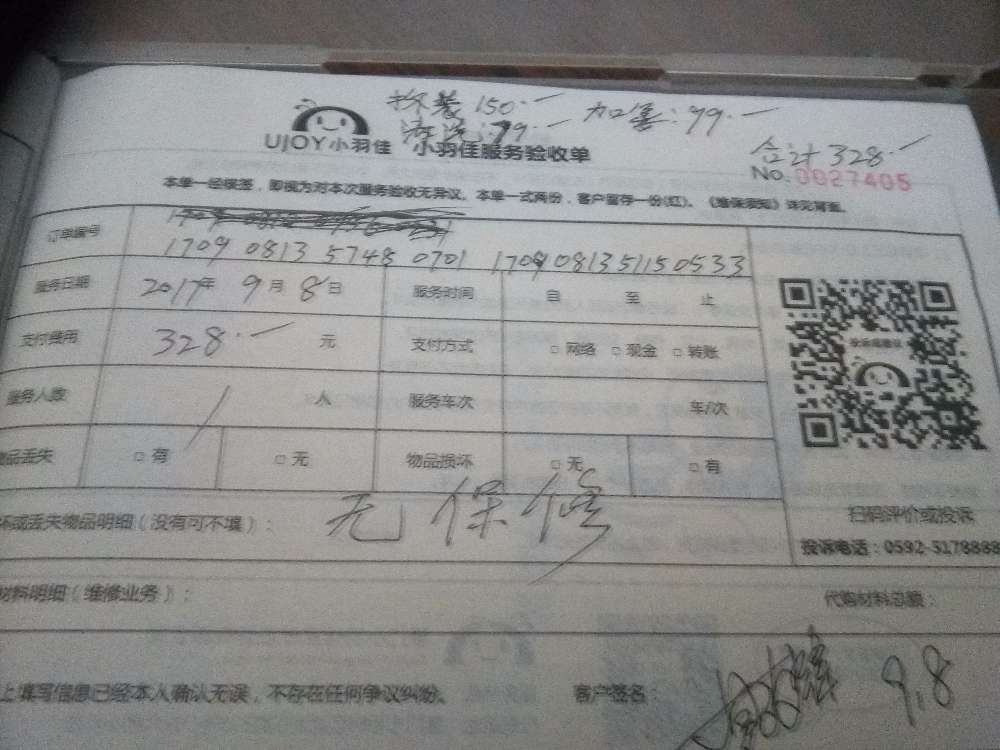 拆装150.一 加雪:99.一
清洗:79一
UJOY小羽佳 小羽佳服务验收单
合计328.一
No.0027405
本单一经签，即视为对本次服务验收无异议。本单一式两份，客户留存一份(红)。《维保须知》详见背面。
订单编号
1709 0813 5748 0701 1709 0813 5115 0533
服务日期 2017年 9月 8日 服务时间 自 至 止
支付费用 328.一 元 支付方式 □ 网络 □ 现金 □ 转账
服务人数 1 人 服务车次 车/次
物品丢失 □ 有 □ 无 物品损坏 □ 无 □ 有
坏或丢失物品明细（没有可不填）： 无保修
扫码评价或投诉
投诉电话：0592-5178888
材料明细（维修业务）： 代购材料总额：
上填写信息已经本人确认无误，不存在任何争议纠纷。 客户签名： 9.8